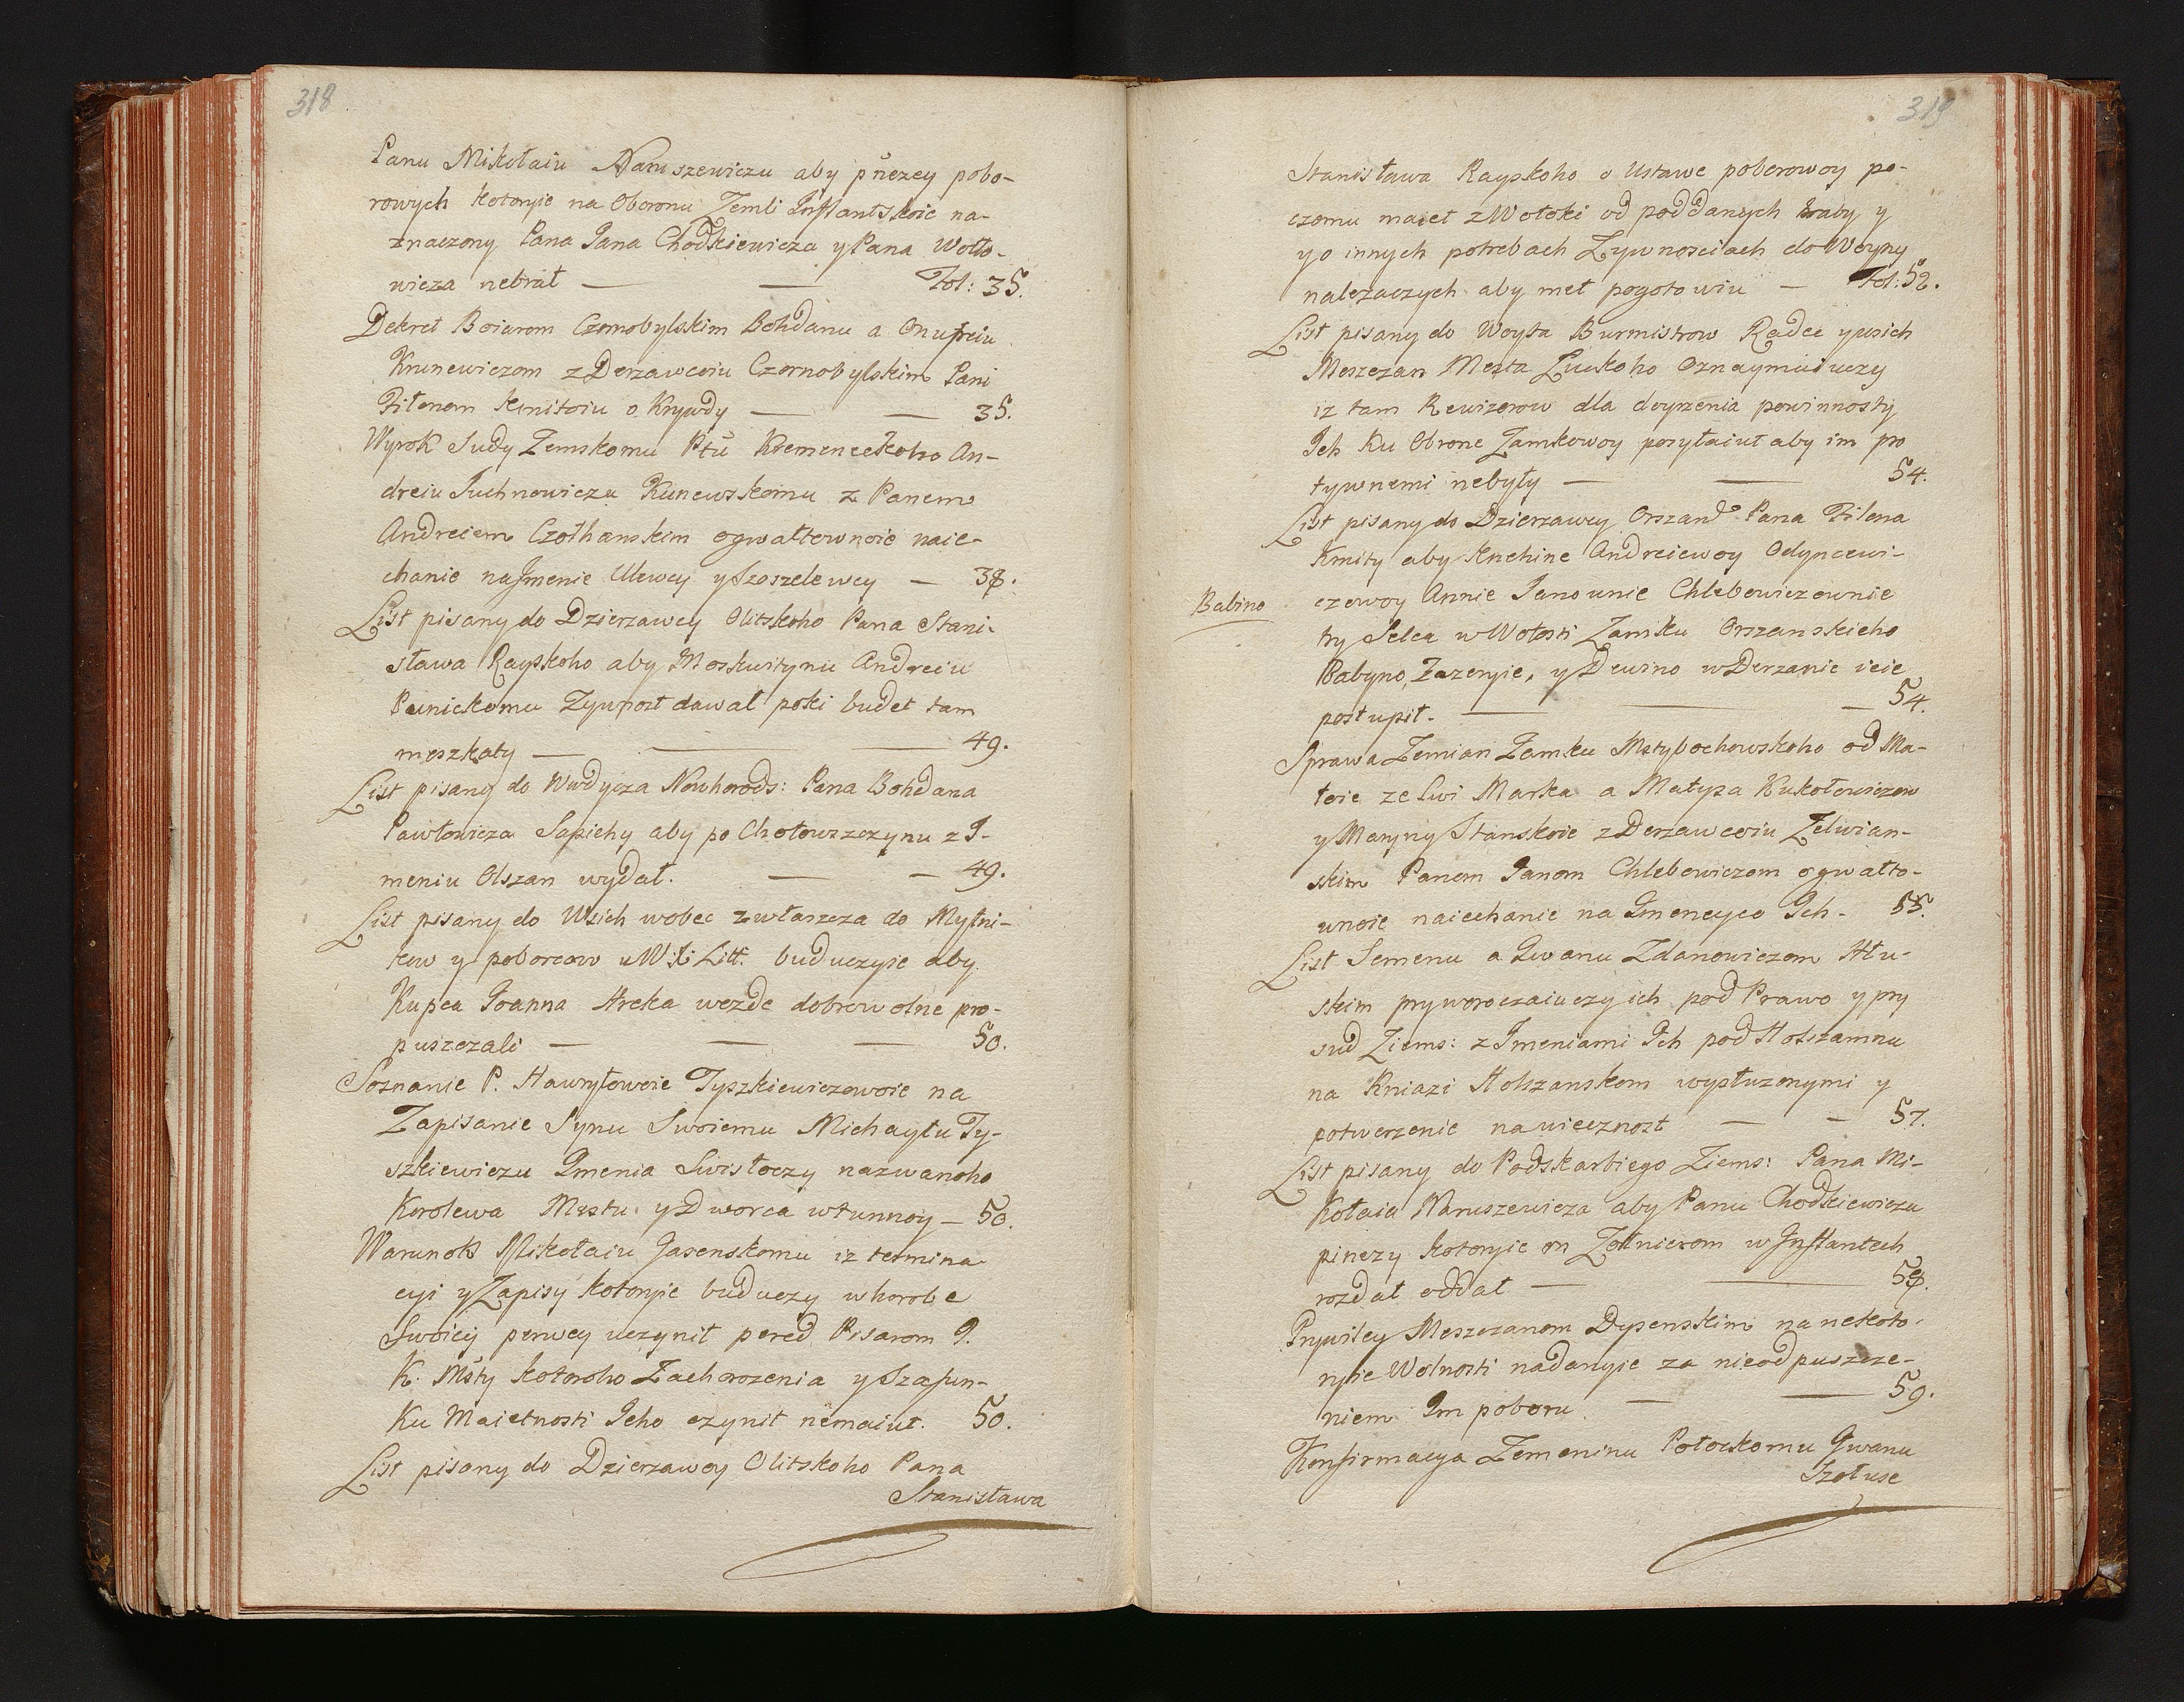 318
Panu Mikołaiu Naruszewiczu aby pňezey pobo-
rowych kotoryie na Oboronu Zemli Inflantskoie na-
znaczony Pana Jana Chodkiewicza y Pana Wołło-
wicza nebrał — — Fol: 35.
Dekret Boiarom Czornobylskim Bohdanu a Onufreiu
Krunewiczom z Derzawceiu Czornobylskim Pani
Filonom Kmitoiu o Krywdy — — 35.
Wyrok Sudy Zemskomu Ptŭ Kremeneckoho An-
dreiu Juchnowiczu Kunewskomu z Panem
Andreiem Czołhanskim ogwałtownoie naie-
chanie na Jmenie Ulewcy y Szoszelewcy — 38.
List pisany do Dzierzawcy Olitskoho Pana Stani-
sława Rayskoho aby Moskwitynu Andreiu
Punickomu Zywnost dawał poki budet tam
meszkaty — — — 49.
List pisany do Wwdycza Nowhorods: Pana Bohdana
Pawłowicza Sapiehy aby po Chołowszczynu z J-
meniu Olszan wydał. — — 49.
List pisany do Wsich wobec zwłaszcza do Mytni-
kow y poborcow u W. X. Litt. buduczyie aby
Kupca Joanna Hreka wezde dobrowolne pro-
puszczali — — — 50.
Soznanie P. Hawryłowoie Tyszkiewiczowoie na
Zapisanie Synu Swoiemu Michayłu Ty-
szkiewiczu Jmenia Swisłoczy nazwanoho
Korolewa Mostu y Dworca wtunnoy — 50.
Warunok Mikołaiu Jasenskomu iz termina
cyi y Zapisy kotoryie buduczy w horobe
Swoiey perwey uczynit pered Pisarom J.
K. Msty kotoroho Zachorozenia y Szafun-
ku Maietnosti Jeho czynit nemaiut. 50.
List pisany do Dzierzawcy Olitskoho Pana
Stanisława
319
Stanisława Rayskoho o Ustawe poborowoy po-
czomu maiet z Wołoki od poddanych braty y
y o innych potrebach Zywnosciach do Woyny
nalezaczych aby meł pogotowiu — Fol: 52.
List pisany do Woyta Burmistrow Radec y wsich
Meszczan Mesta Łuckoho Oznaymuiuczy
iz tam Rewizorow dla doyrzenia powinnosty
Jch ku Obrone Zamkowoy posyłaiut aby im pro
tywnemi nebyły — — 54.
List pisany do Dzierzawcy Orszand Pana Filona
Kmity aby Knehine Andreiewoy Odyncewi-
Babino
czowoy Annie Janownie Chlebowiczownie
try Selca w Wołosti Zamku Orszanskieho
Babyno, Zazeryie, y Dewino w Derzanie ieie
postupił. — — — 54.
Sprawa Zemian Zamku Mstybochowskoho od Ma-
toie ze Lwi Marka a Matysa Kukołowiczow
y Maryny Stanskoie z Derzawceiu Zelwian-
skim Panom Janom Chlebowiczom ogwałto-
wnoie naiechanie na Jmeneyco Jch - 55.
List Semenu a Jwanu Zdanowiczom Hłu-
skim pryworoczaiuczy ich pod Prawo y pry
sud Ziems: z Jmeniami Jch pod Holszamnu
na Kniazi Holszanskom wysłuzonymi y
potwerzenie na wiecznost — — 57.
List pisany do Podskarbiego Ziems: Pana Mi-
kołaia Naruszewicza aby Panu Chodkiewiczu
pinezy kotoryie on Zołnierom w Jnflantech
rozdał oddał — — 58.
Prywiley Meszczanom Dysenskim na nekoto-
ryie Wolnosti nadanyie za nieodpuszcze-
niem Jm poboru — — 59.
Konfirmacya Zemeninu Połockomu Jwanu
Szołuse